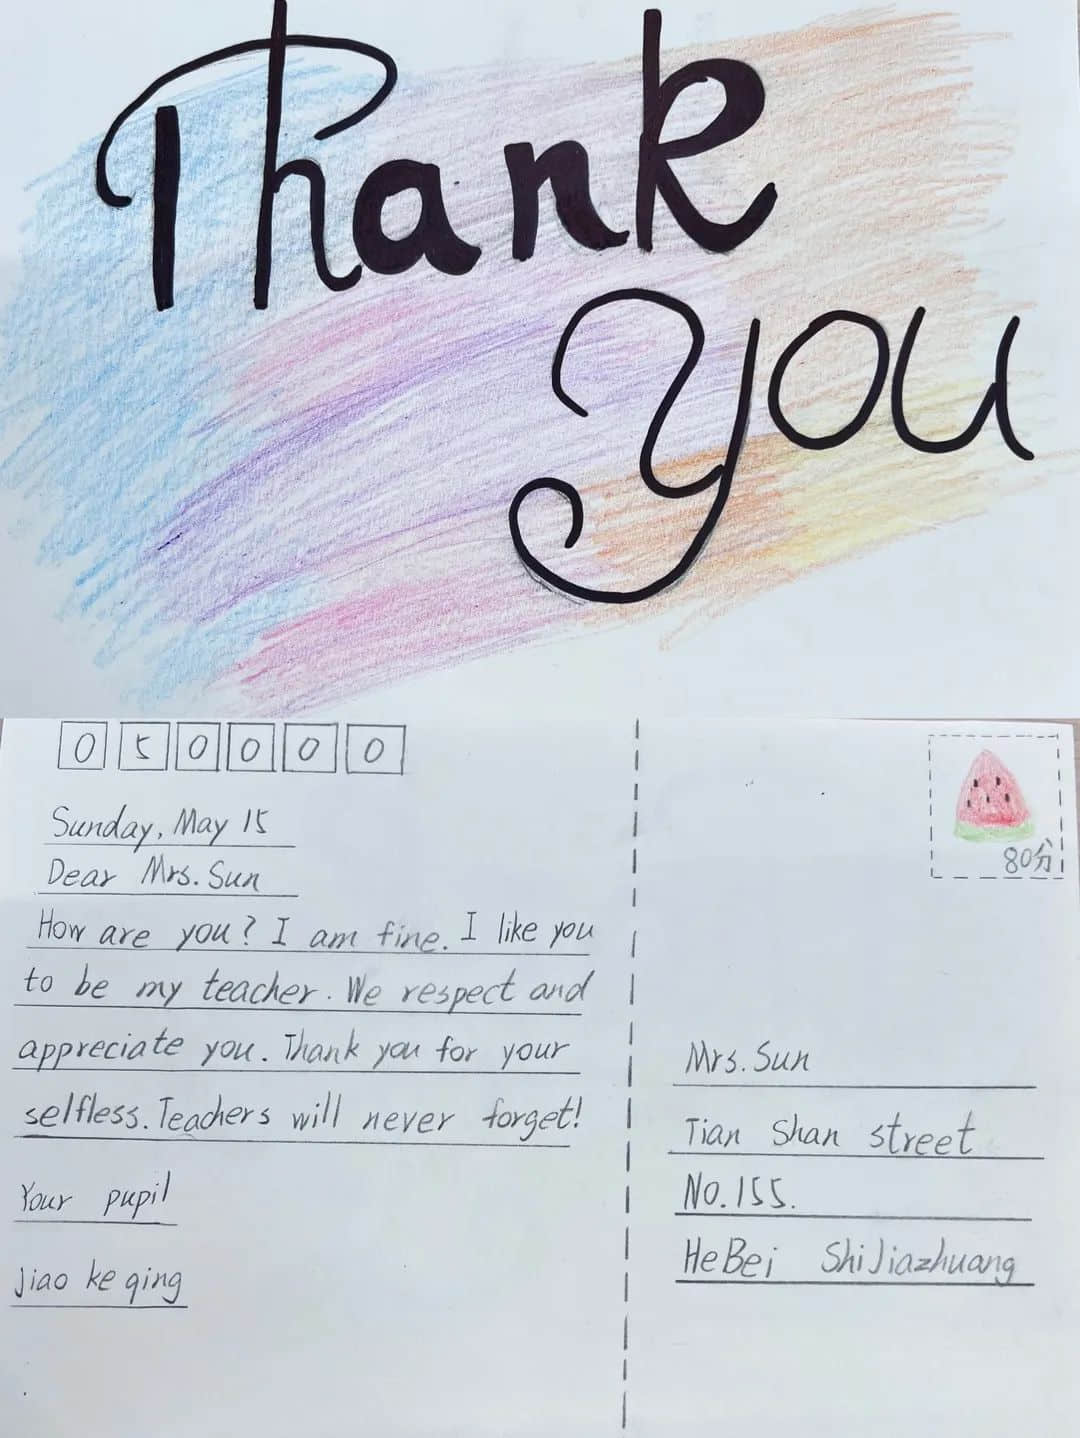 Thank
you
050000
Sunday, May 15
Dear Mrs. Sun
How are you? I am fine. I like you
to be my teacher. We respect and
appreciate you. Thank you for your
selfless. Teachers will never forget!
Your pupil
Jiao ke qing
80分
Mrs. Sun
Tian Shan street
NO.155.
HeBei ShiJiazhuang